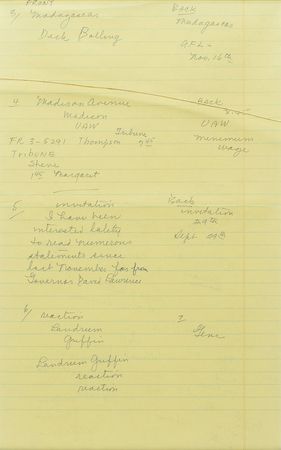 FRONT
Back
5/ Madagascar
Madagascar
Dick Bolling
AFL-
Nov. 16th
4 Madison Avenue
Back
Madison
UAW
UAW
Tribune
FR 3-5291 Thompson
minimum
wage
Tribune
Steve
Margaret
5 invitation
Back
I have been
invitation
29th
interested lately
to read numerous
Sept 29th
statements since
last November from
Governor David Lawrence
6/ reaction
7
Landrum
Gene
Griffin
Landrum Griffin
reaction
reaction